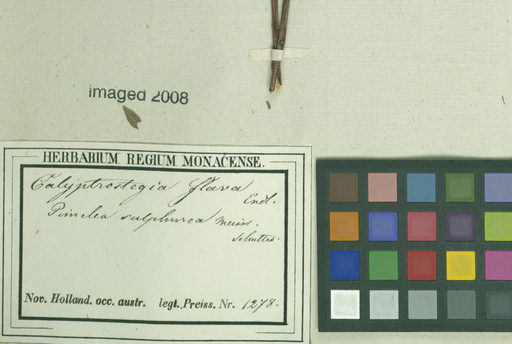 imaged 2008
HERBARIUM REGIUM MONACENSE.
Calyptrostegia flava
Endl.
Pimelea sulphurea Meisn.
Nov. Holland. occ. austr. legt. Preiss. Nr. 1278.